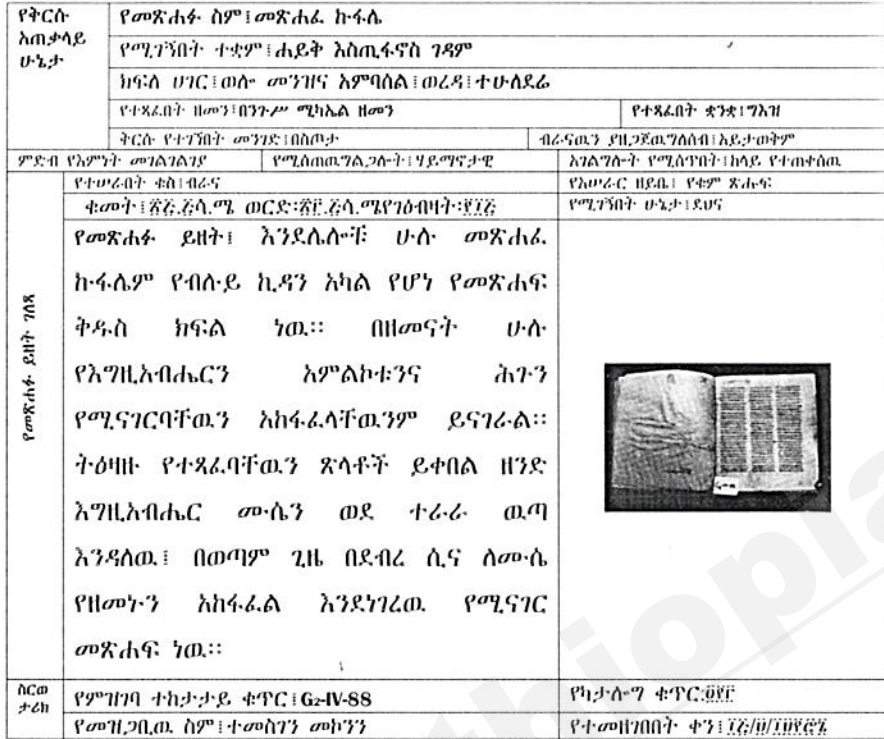 የቅርሱ አጠቃላይ ሁኔታ
የመጽሐፉ ስም፤መጽሐፈ ኩፋሌ
የሚገኝበት ተቋም፤ሐይቅ እስጢፋኖስ ገዳም
ክፍለ ሀገር፤ወሎ መንዝና አምባሰል፤ወረዳ፤ተሁለደሬ
የተጻፈበት ዘመን፤በንጉሥ ሚካኤል ዘመን
የተጻፈበት ቋንቋ፤ግእዝ
ቅርሱ የተገኘበት መንገድ፤በስጦታ
ብራናዉን ያዘጋጀዉግለሰብ፤አይታወቅም
ምድብ የእምነት መገልገልገያ
የሚሰጠዉግልጋሎት፤ሃይማኖታዊ
አገልግሎት የሚሰጥበት፤ከላይ የተጠቀሰዉ
የተሠራበት ቁስ፤ብራና
የአሠራር ዘይቤ፤ የቁም ጽሑፍ
ቁመት፤
ወርድ፡
የሚገኝበት ሁኔታ፤ደህና
የመጽሐፉ ይዘት ገለጻ
የመጽሐፉ ይዘት፤ እንደሌሎቹ ሁሉ መጽሐፈ
ኩፋሌም የብሉይ ኪዳን አካል የሆነ የመጽሐፍ
ቅዱስ ክፍል ነዉ። በዘመናት ሁሉ
የእግዚአብሔርን አምልኮቱንና ሕጉን
የሚናገርባቸዉን አከፋፈላቸዉንም ይናገራል።
ትዕዛዙ የተጻፈባቸዉን ጽላቶች ይቀበል ዘንድ
እግዚአብሔር ሙሴን ወደ ተራራ ዉጣ
እንዳለዉ፤ በወጣም ጊዜ በደብረ ሲና ለሙሴ
የዘመኑን አከፋፈል እንደነገረዉ የሚናገር
መጽሐፍ ነዉ።
ስርወ ታሪክ
የምዝገባ ተከታታይ ቁጥር፤G2-IV-88
የካታሎግ ቁጥር፡
የመዝጋቢዉ ስም፤ተመስገን መኮንን
የተመዘገበበት ቀን፤